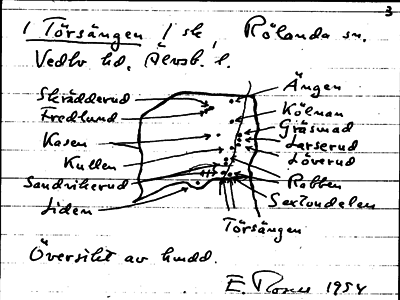 3
1 Törsängen 1 sk, Rölanda sn.
Vedbo hd, Älvsb. l.
Skrädderud
Fredlund
Kasen
Kullen
Sandvikerud
Liden
Ängen
Kölnan
Gräsmad
Larserud
Löverud
Rabben
Sextondelen
Törsängen
Översikt av hmdd.
E. 1954